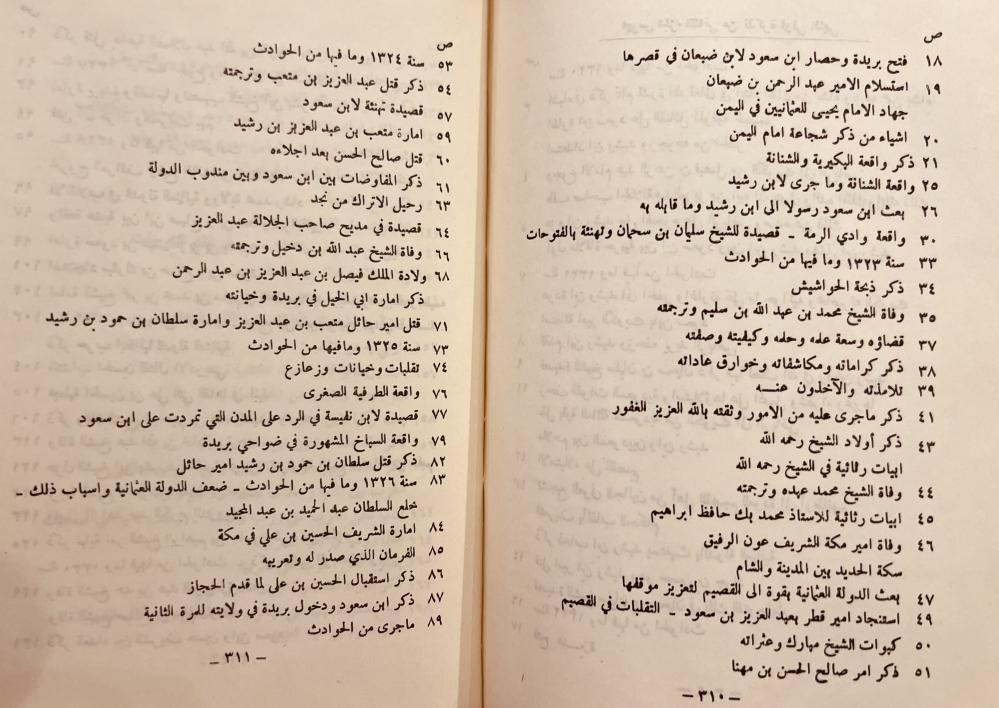 ص
١٨ فتح بريدة وحصار ابن سعود لابن ضبعان في قصرها
١٩ استسلام الامير عبد الرحمن بن ضبعان
جهاد الامام يحيى للعثمانيين في اليمن
٢٠ اشياء من ذكر شجاعة امام اليمن
٢١ ذكر واقعة البكيرية والشنانة
٢٥ واقعة الشنانة وما جرى لابن رشيد
٢٦ بعث ابن سعود رسولا الى ابن رشيد وما قابله به
٣٠ واقعة وادي الرمة ـ قصيدة للشيخ سليمان بن سحمان وتهنئة بالفتوحات
٣٣ سنة ١٣٢٣ وما فيها من الحوادث
٣٤ ذكر ذبحة الحواشيش
٣٥ وفاة الشيخ محمد بن عبد الله بن سليم وترجمته
٣٧ قضاؤه وسعة علمه وحلمه وكيفيته وصفته
٣٨ ذكر كراماته ومكاشفاته وخوارق عاداته
٣٩ تلامذته والآخذون عنـــه
٤١ ذكر ماجرى عليه من الامور وثقته بالله العزيز الغفور
٤٣ ذكر أولاد الشيخ رحمه الله
ابيات رثائية في الشيخ رحمه الله
٤٤ وفاة الشيخ محمد عبده وترجمته
٤٥ ابيات رثائية للاستاذ محمد بك حافظ ابراهيم
٤٦ وفاة امير مكة الشريف عون الرفيق
سكة الحديد بين المدينة والشام
٤٧ بعث الدولة العثمانية بقوة الى القصيم لتعزيز موقفها
٤٩ استنجاد امير قطر بعبد العزيز بن سعود ـ التقلبات في القصيم
٥٠ كبوات الشيخ مبارك وعثراته
٥١ ذكر امر صالح الحسن بن مهنا
ـ ٣١٠ ـ
ص
٥٣ سنة ١٣٢٤ وما فيها من الحوادث
٥٤ ذكر قتل عبد العزيز بن متعب وترجمته
٥٧ قصيدة تهنئة لابن سعود
٥٩ امارة متعب بن عبد العزيز بن رشيد
٦٠ قتل صالح الحسن بعد اجلاءه
٦١ ذكر المفاوضات بين ابن سعود وبين مندوب الدولة
٦٣ رحيل الاتراك من نجد
٦٤ قصيدة في مديح صاحب الجلالة عبد العزيز
٦٦ وفاة الشيخ عبد الله بن دخيل وترجمته
٦٨ ولادة الملك فيصل بن عبد العزيز بن عبد الرحمن
ذكر امارة ابي الخيل في بريدة وخيانته
٧١ قتل امير حائل متعب بن عبد العزيز وامارة سلطان بن حمود بن رشيد
٧٣ سنة ١٣٢٥ ومافيها من الحوادث
٧٤ تقلبات وخيانات وزعازع
٧٦ واقعة الطرفية الصغرى
٧٧ قصيدة لابن نفيسة في الرد على المدن التي تمردت على ابن سعود
٧٩ واقعة السباخ المشهورة في ضواحي بريدة
٨٢ ذكر قتل سلطان بن حمود بن رشيد امير حائل
٨٣ سنة ١٣٢٦ وما فيها من الحوادث ـ ضعف الدولة العثمانية واسباب ذلك ـ
خلع السلطان عبد الحميد بن عبد المجيد
٨٤ امارة الشريف الحسين بن علي في مكة
٨٥ الفرمان الذي صدر له وتعريبه
٨٦ ذكر استقبال الحسين بن على لما قدم الحجاز
٨٧ ذكر ابن سعود ودخول بريدة في ولايته للمرة الثانية
٨٩ ماجرى من الحوادث
ـ ٣١١ ـ